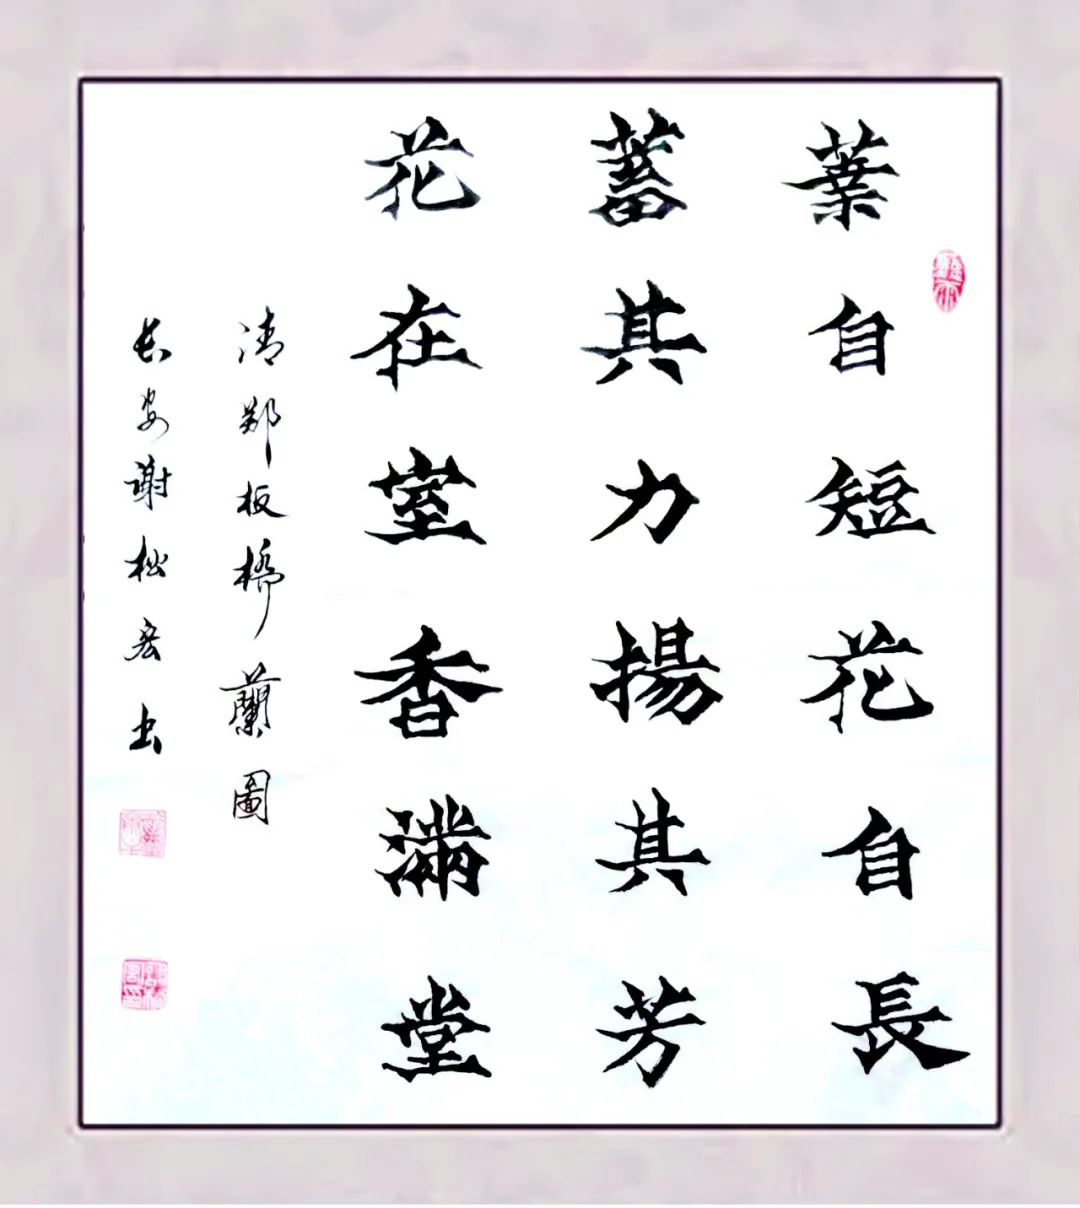 葉自短花自長
蓄其力揚其芳
花在室香滿堂
清鄭板橋蘭圖
長安謝松宏書